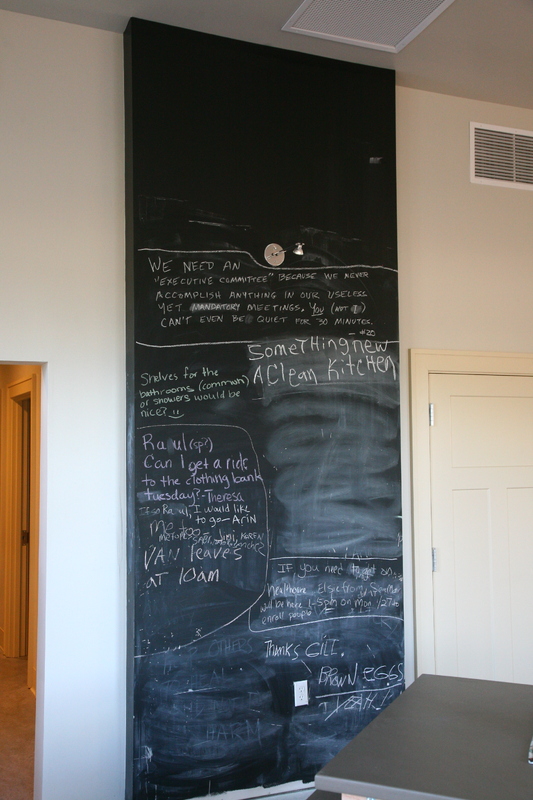 WE NEED AN
"EXECUTIVE COMMITTEE" BECAUSE WE NEVER
ACCOMPLISH ANYTHING IN OUR USELESS
YET MANDATORY MEETINGS. YOU (NOT I)
CAN'T EVEN BE QUIET FOR 30 MINUTES.
- #20
SomeTHing new
A Clean KitcHEN
Shelves for the
bathrooms (common)
or showers would be
nice?
Raul (sp?)
Can I get a ride
to the clothing bank
tuesday? -Theresa
Raul, I would like
to go- Arin
Me too
VAN leaves
AT 10am
If you need to get on
healthcare, Elsie from
will be here 1-5pm on Mon 1/27 to
enroll people
Thanks GILI.
BROWN EGGS
YEAH!
OTHERS
HARM